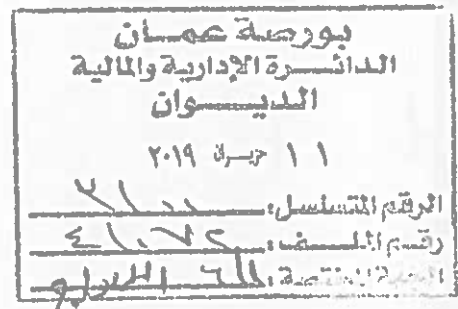 بورصة عمان
الدائرة الإدارية والمالية
الديوان
١١ حزيران ٢٠١٩
الرقم المتسلسل:
رقم الملف: ٤١٠٧٢
الجهة المختصة: